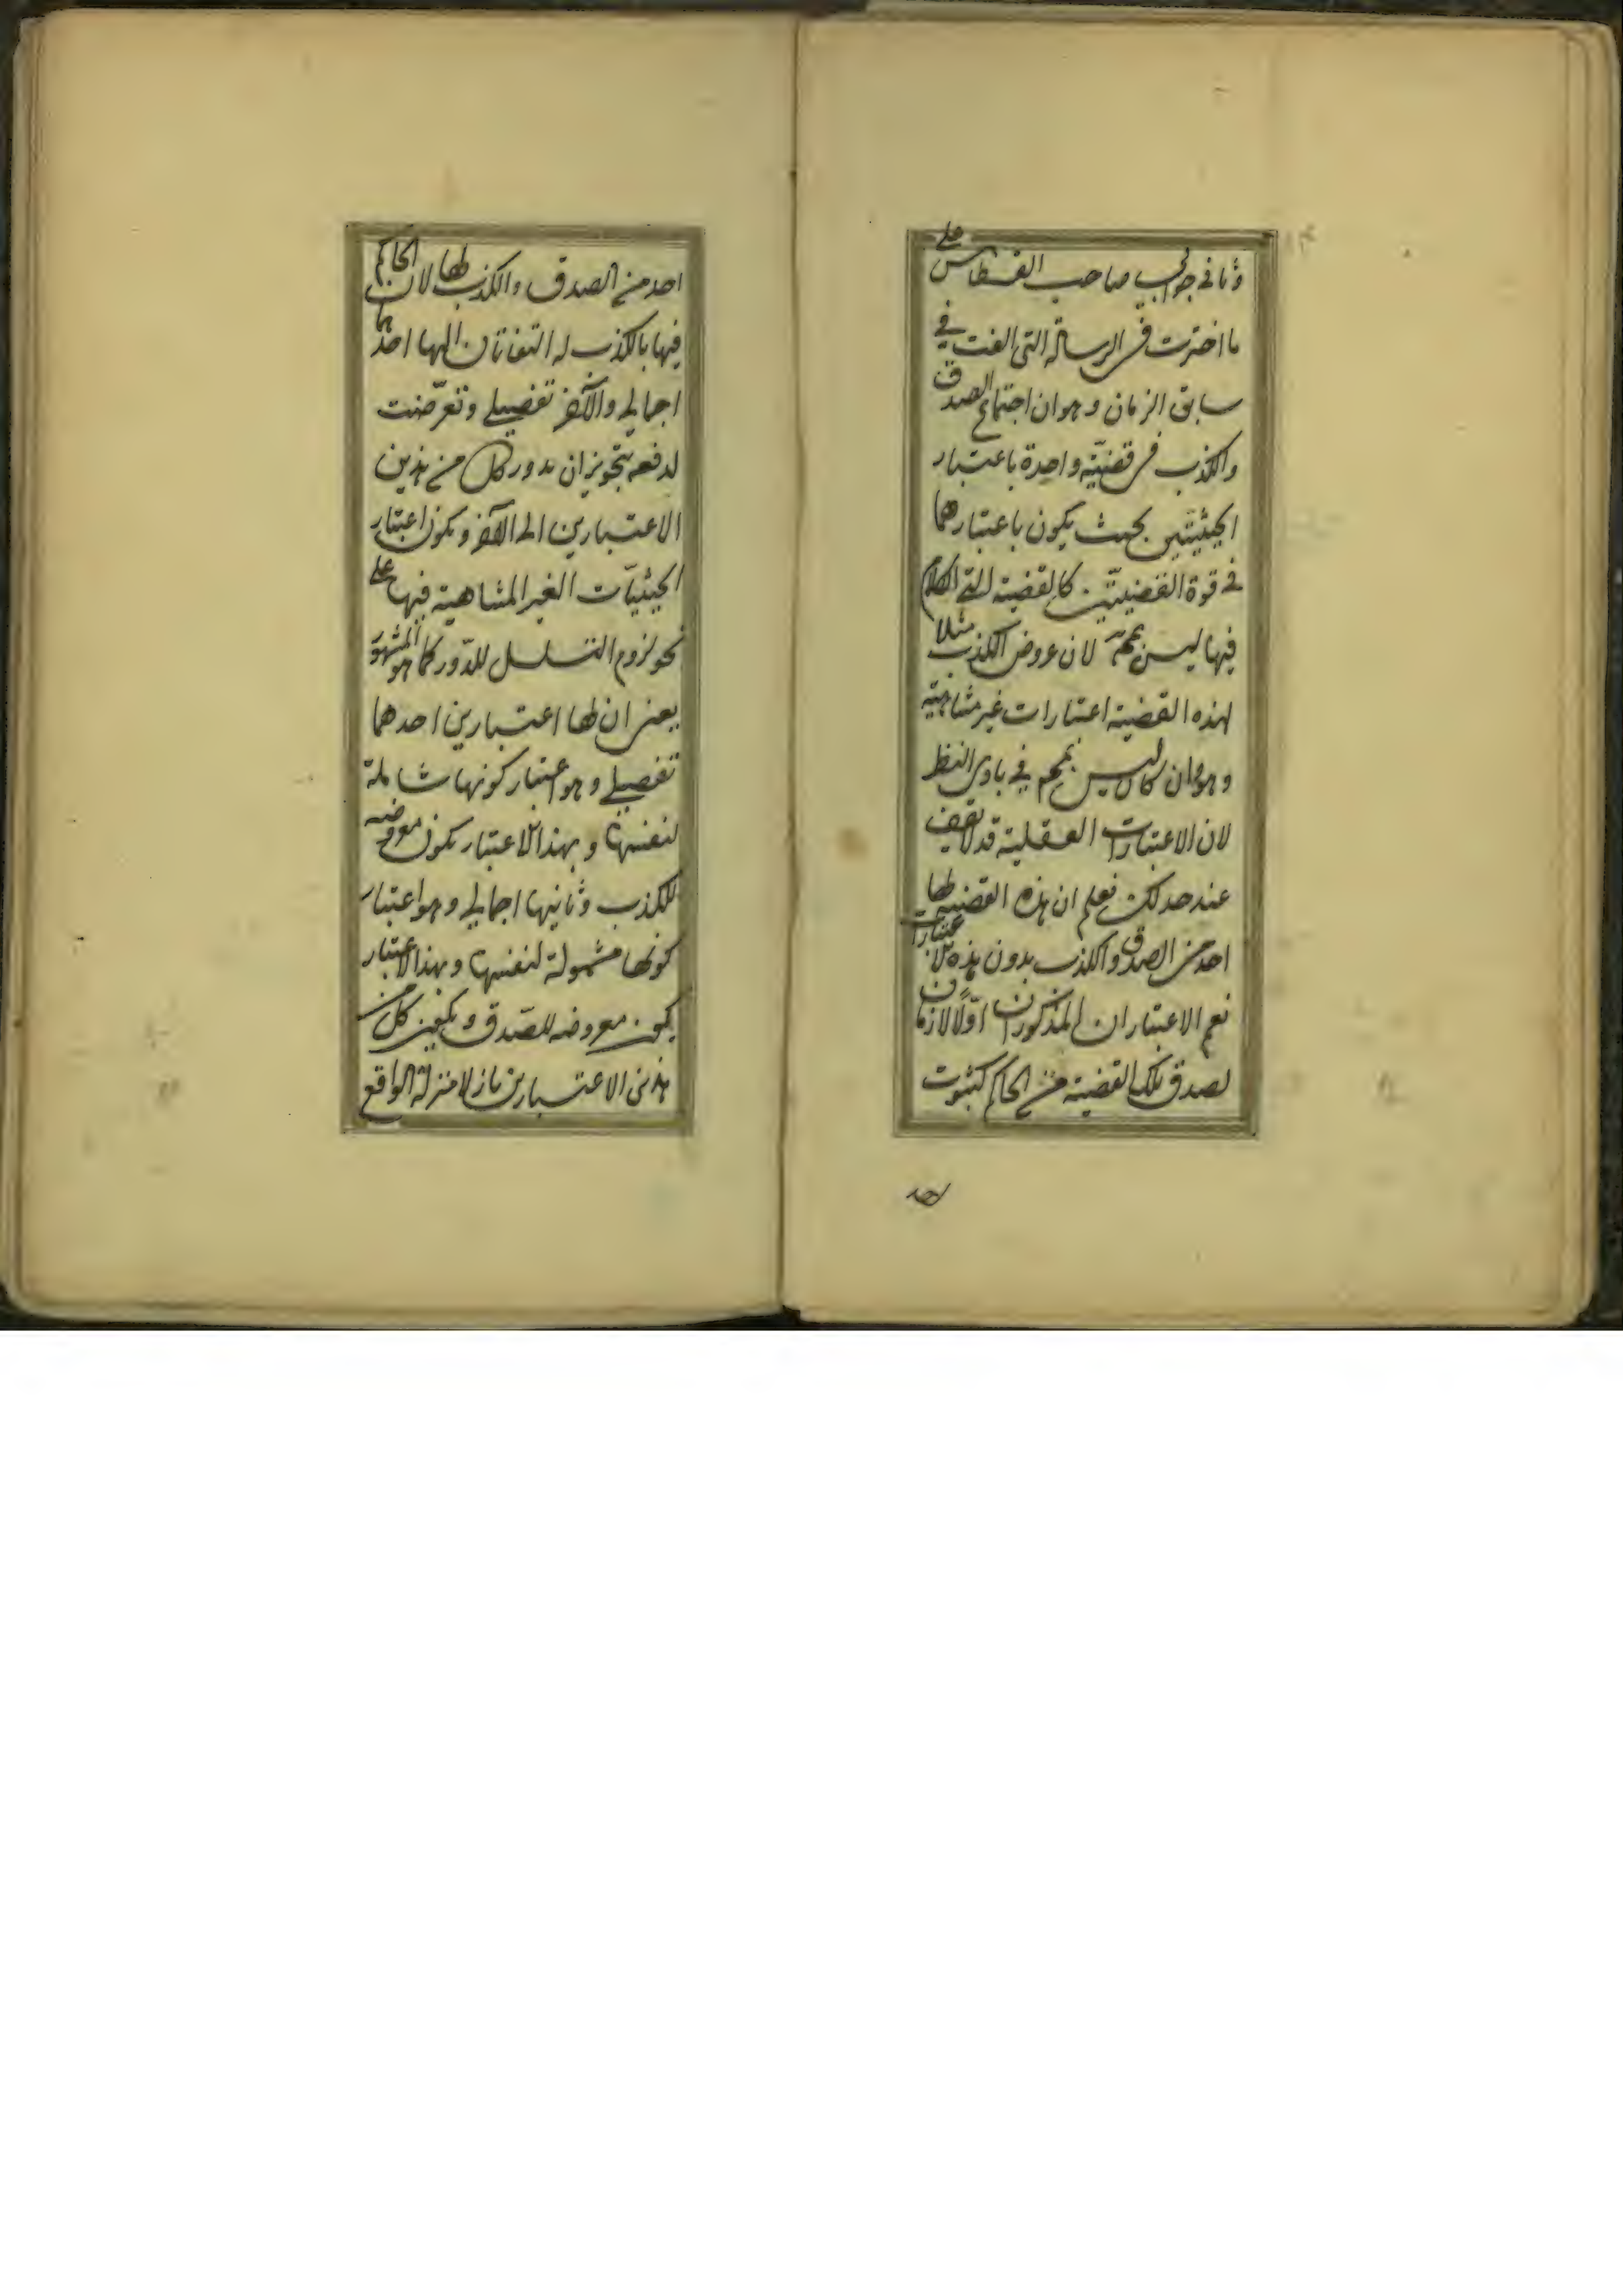 وثانى جوابى صاحب القسطاس على
ما اخترت فى الرسالة التى الفت فى
سابق الزمان وهو ان اجتماع الصدق
والكذب فى قضيّة واحدة باعتبار
الحيثيتين بحيث يكون باعتبارهما
فى قوة القضيتين كالقضية التى الكلام
فيها ليس بمحّ لان عروض الكذب مثلا
لهذه القضية اعتبارات غير متناهية
وهو وان كان ليس بمحم فى بادى النظر
لان الاعتبارات العقلية قد لا تقف
عند حد لكن نعلم ان هذه القضية لها
احد من الصدق والكذب بدون هذه الاعتبارات
نعم الاعتباران المذكوران اوّلا لازمان
لصدق تلك القضية من الحاكم كثبوت
احد
احد من الصدق والكذب لها لان الحاكم
فيها بالكذب له التفاتان اليها احدهما
اجمالى والآخر تفصيلى وتعرّضت
لدفعه بتجويز ان يدور كل من هذين
الاعتبارين الى الآخر ويكون اعتبار
الحيثيّات الغير المتناهية فيها على
نحو لزوم التسلسل للدّور كما هو المشهور
يعنى ان لها اعتبارين احدهما
تفصيلى وهو اعتبار كونها شاملة
لنفسها وبهذا الاعتبار يكون معروضه
للكذب وثانيها اجمالى وهو اعتبار
كونها مشمولة لنفسها وبهذا الاعتبار
يكون معروضه للصّدق و كل من
هذين الاعتبارين نازلا منزلة الواقع